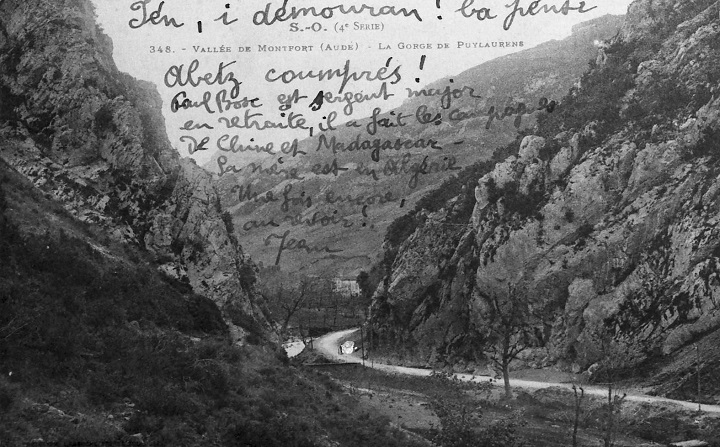 Tén, i démouran! ba pensi
S.-O. (4e SÉRIE)
348. - VALLÉE DE MONTFORT (AUDE) - LA GORGE DE PUYLAURENS
Abetz coumprés!
Paul Bosc est sergent major
en retraite, il a fait les campagnes
De Chine et Madagascar -
Sa mère est en Algérie
Une fois encore,
au revoir!
Jean